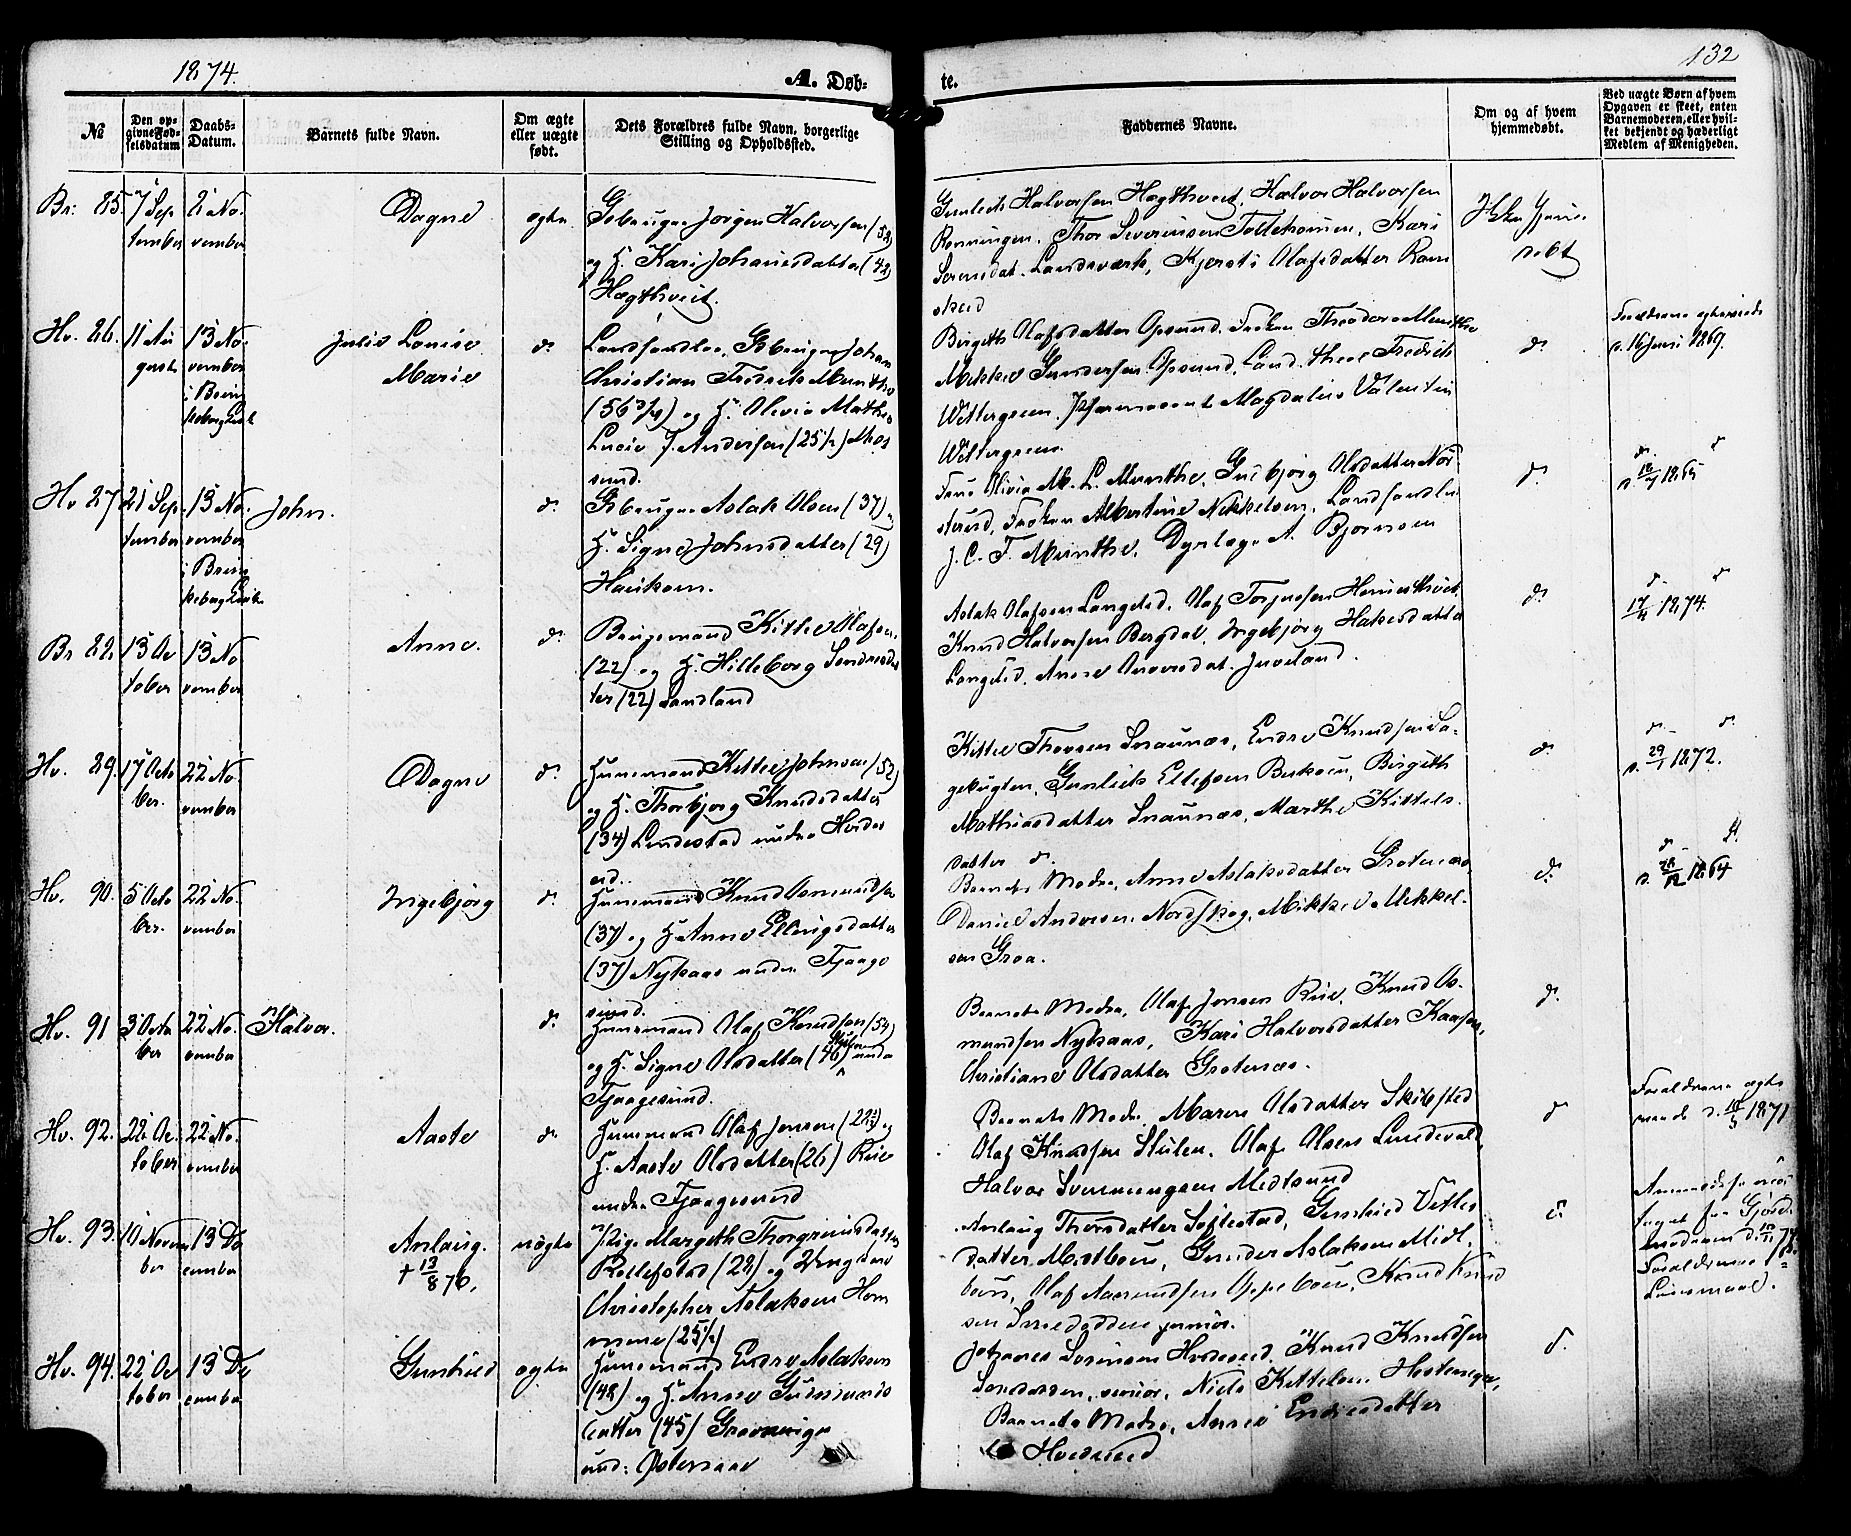 1874.
A. Døb-
te.
132
№
Den op-
givne Fød-
selsdatum
Daabs-
Datum.
Barnets fulde Navn.
Om ægte
eller uægte
født.
Dets Forældres fulde Navn, borgerlige
Stilling og Opholdssted.
Faddernes Navne.
Om og af hvem
hjemmedøbt.
Ved uægte Børn af hvem
Opgaven er skeet, enten
Barnemoderen, eller hvil-
ket bekjendt og hæderligt
Medlem af Menigheden.
Br: 85.
7 Sep
tember
8 No.
vember
Dagne
ægte
Gbruger Jørgen Halvorsen (52)
og H. Kari Johannesdatter (42)
Hægthveit.
Gunleik Halvorsen Hægthveit, Halvor Halvorsen
Rønningen, Thor Severinsen Tottehomen, Kari
Sørensdat. Landsværk, Kjersti Olafsdatter Rom
skeid
Ikke hjemme
døbt
Hv. 86.
11 Au
gust
13 No.
vember
i Brun
kebergkirk
Julie Louise
Marie
do
Landhandler, Gbruger Johan
Christian Fredrik Munthe
(56 3/4) og H. Olivia Mathea
Lucie J. Andersen (25 1/2) Mos
sund.
Birgith Olafsdatter Opsund, Frøken Theodora Munthe
Mikkel Gundersen Opsund, Land. Fredrik
Wettergreen, Magdalene Valentin
Wettergreen.
do
Forældrene egteviede
d. 16 Juni 1869.
Hv 87.
21 Sep.
tember
13 No.
vember
i Brun
kebergkirk
John.
do
Gbruger Aslak Olsen (37) og
H. Signe Johnsdatter (29)
Haukom.
Frue Olivia M. L. Munthe, Gunbjørg Olsdatter Nor
sterud, Frøken Albertine Nikkelsen, Landhandler
J. C. F. Munthe, Dyrlæge A. Bjørnsen
do
do do
1865
Br 88.
13 Oc
tober
13 No
vember
Anne.
do
Brugemand Kittel Olafsen
(22) og H. Hilleborg Sondresdat
ter (22) Sandland
Aslak Olafsen Langelid, Olaf Torjussen Hemmesthveit
Knud Halvorsen Bergdal, Ingebjørg Hakesdatter
Langelid, Anne Anversdat. Juveland.
do
do do
1874.
Hv. 89.
17 Octo
ber.
22 No.
vember
Dagne
do
Husmand Kittel Johnsen (52)
og H. Thorbjørg Knudsdatter
(34) Lendestad under Hvides
eid.
Kittel Thorsen Snaunæs, Endre Knudsen Sa-
gekugten, Gunleik Ellefsen Buksun, Birgith
Mathiasdatter Snaunæs, Marthe Kittels-
datter do
do
do do
d. 29/1 1872.
Hv. 90.
5 Octo
ber.
22 No.
vember
Ingebjørg
do
Husmand Knud Osmundsen
(37) og H. Anne Ellingsdatter
(37) Nykaas under Fjaage
sund.
Barnets Moder, Anne Aslaksdatter Grotenæs
Daniel Andersen, Nordskog, Mikkel Mikkel-
sen Graa.
do
do
1864
Hv. 91
3 Octo
ber
22 No.
vember
Halvor.
do
Husmand Olaf Knudsen (54)
og H. Signe Olsdatter (46) Stulen under
Fjaagesund.
Barnets Moder, Olaf Jensen Rue, Knud Os-
mundsen Nykaas, Kari Halvorsdatter Kaasen,
Christiane Olsdatter Grotenæs.
do
Hv. 92.
22 Oc
tober
22 No.
vember
Aaste
do
Husmand Olaf Jensen (22 1/2) og
H. Aaste Olsdatter (26) Rue
under Fjaagesund
Barnets Moder, Maren Olsdatter Skibsted
Olaf Knudsen Stulen, Olaf Olsen Lundevald
Halvor Svenungsen Midtsund
do
Forældrene egte
viede d. 1871
Hv. 93.
10 Novem
ber
13 De
cember
Anlaug.
† 13/8 76.
uægte
Pige Margith Thorgrimsdatter
Rollefstad (28) og Ungkarl
Christopher Aslaksen Hom
mene (25 1/2)
Anlaug Thorsdatter Loftestad, Gunhild Vetles
datter Midtboen, Gunder Aslaksen Midt
boen, Olaf Aasmundsen Oppeboen, Knud Knud
sen Smedodden junior.
do
Anmeldelse mod
taget fra Gjord
moderen
Forældrenes
Leiermaal.
Hv. 94.
22 Oc
tober
13 De
cember
Gunhild
ægte
Husmand Endre Aslaksen
(48) og H. Anne Gudmunds
datter (45) Grovninge
und: Østeraae
Johannes Sørensen Hvideseid, Knud Knudsen
Sondersen, senior, Niels Kittelsen Hosteneger,
Barnets Moder, Anne Endresdatter
Hvideseid
do